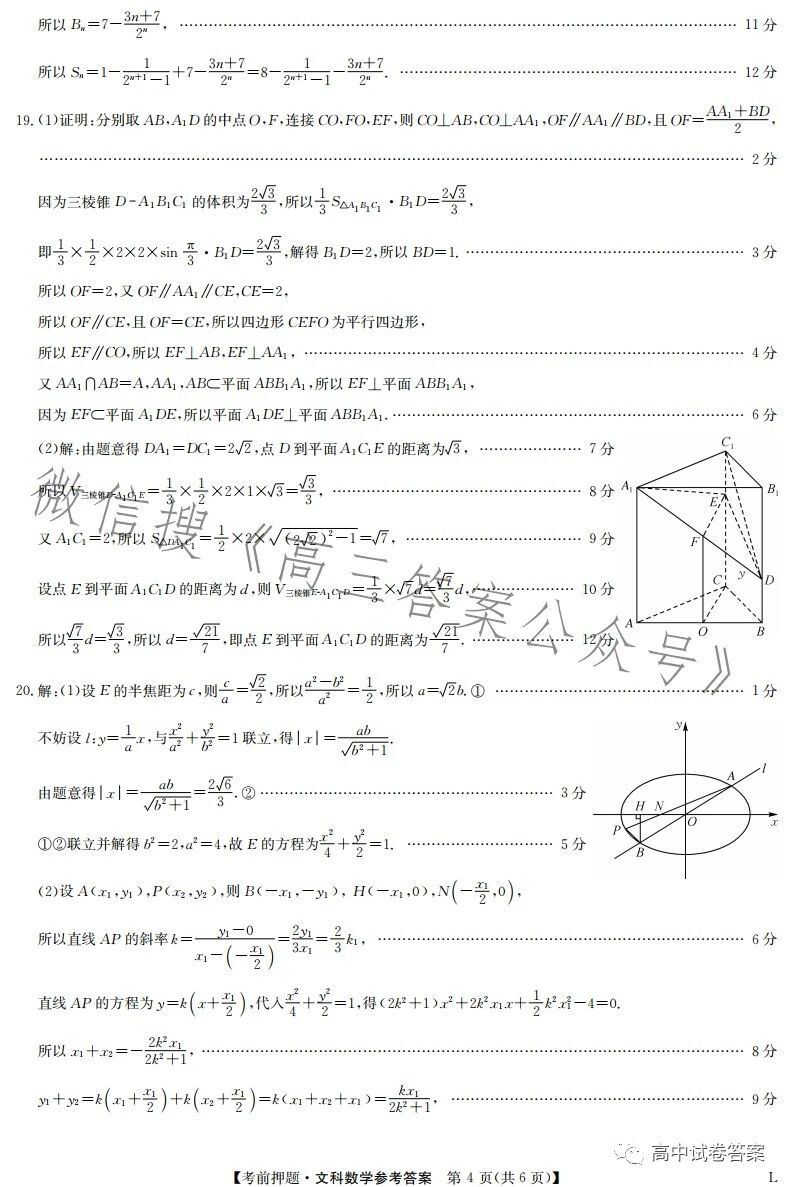 所以 Bₙ=7-(3n+7)/2ⁿ, …… 11 分
所以 Sₙ=1-1/(2ⁿ⁺¹-1)+7-(3n+7)/2ⁿ=8-1/(2ⁿ⁺¹-1)-(3n+7)/2ⁿ. …… 12 分
19.(1)证明:分别取 AB,A₁D 的中点 O,F,连接 CO,FO,EF,则 CO⊥AB,CO⊥AA₁,OF∥AA₁∥BD,且 OF=(AA₁+BD)/2,
…… 2 分
因为三棱锥 D-A₁B₁C₁ 的体积为 2√3/3,所以 1/3 S△A₁B₁C₁·B₁D=2√3/3,
即 1/3×1/2×2×2×sin π/3·B₁D=2√3/3,解得 B₁D=2,所以 BD=1. …… 3 分
所以 OF=2,又 OF∥AA₁∥CE,CE=2,
所以 OF∥CE,且 OF=CE,所以四边形 CEFO 为平行四边形,
所以 EF∥CO,所以 EF⊥AB,EF⊥AA₁, …… 4 分
又 AA₁∩AB=A,AA₁,AB⊂平面 ABB₁A₁,所以 EF⊥平面 ABB₁A₁,
因为 EF⊂平面 A₁DE,所以平面 A₁DE⊥平面 ABB₁A₁. …… 6 分
(2)解:由题意得 DA₁=DC₁=2√2,点 D 到平面 A₁C₁E 的距离为√3, …… 7 分
所以 V三棱锥D-A₁C₁E=1/3×1/2×2×1×√3=√3/3, …… 8 分
又 A₁C₁=2,所以 S△DA₁C₁=1/2×2×√((2√2)²-1)=√7, …… 9 分
设点 E 到平面 A₁C₁D 的距离为 d,则 V三棱锥E-A₁C₁D=1/3×√7d=√7/3 d, …… 10 分
所以 √7/3 d=√3/3,所以 d=√21/7,即点 E 到平面 A₁C₁D 的距离为 √21/7. …… 12 分
C₁
A₁
B₁
E
F
C
y
D
A
O
B
微信搜《高三答案公众号》
20.解:(1)设 E 的半焦距为 c,则 c/a=√2/2,所以 (a²-b²)/a²=1/2,所以 a=√2b.① …… 1 分
不妨设 l:y=1/a x,与 x²/a²+y²/b²=1 联立,得|x|=ab/√(b²+1).
由题意得|x|=ab/√(b²+1)=2√6/3.② …… 3 分
①②联立并解得 b²=2,a²=4,故 E 的方程为 x²/4+y²/2=1. …… 5 分
y
l
A
H
N
O
x
P
B
(2)设 A(x₁,y₁),P(x₂,y₂),则 B(-x₁,-y₁), H(-x₁,0),N(-x₁/2,0),
所以直线 AP 的斜率 k=(y₁-0)/(x₁-(-x₁/2))=2y₁/3x₁=2/3 k₁, …… 6 分
直线 AP 的方程为 y=k(x+x₁/2),代入 x²/4+y²/2=1,得(2k²+1)x²+2k²x₁x+1/2 k²x₁²-4=0.
所以 x₁+x₂=-2k²x₁/(2k²+1), …… 8 分
y₁+y₂=k(x₁+x₁/2)+k(x₂+x₁/2)=k(x₁+x₂+x₁)=kx₁/(2k²+1), …… 9 分
高中试卷答案
【考前押题·文科数学参考答案 第 4 页(共 6 页)】 L